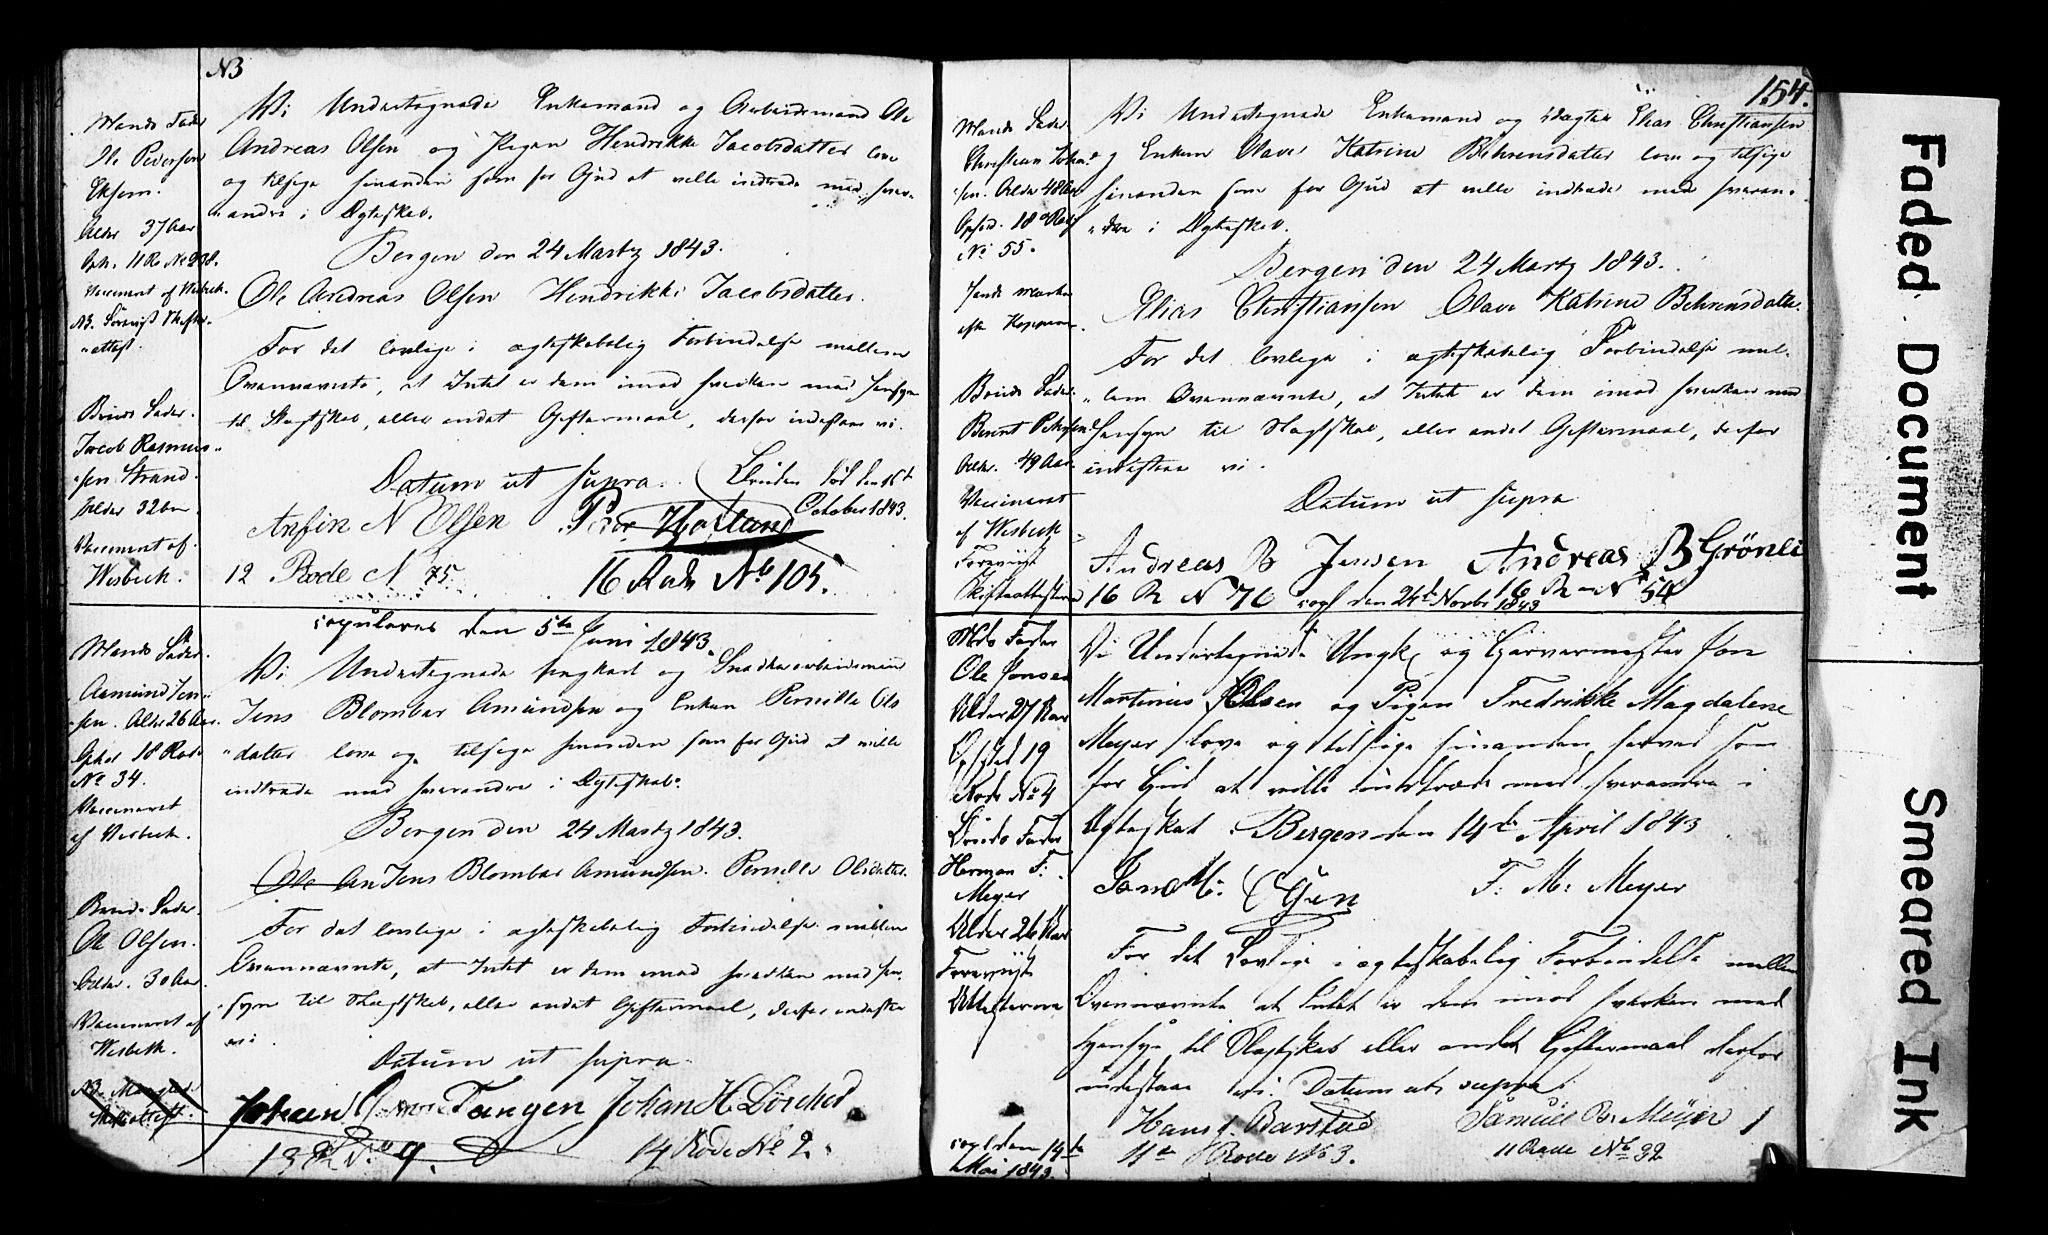 NB
Mands Fader
Ole Pedersen
Alder 37 Aar
Oph. 11 R. No 298.
Vaccineret af Wisbech.
NB. Foreviist Skifte-
"attest.
Bruds Fader.
Jacob Rasmus-
"sen Strand.
Alder 32 Aar
Vaccineret af
Wisbech.
Vi Undertegnede Enkemand og Arbeidsmand Ole
Andreas Olsen og Pigen Hendrikke Jacobsdatter love
og tilsige hinanden som for Gud at ville indtræde med hver-
"andre i Ægteskab.
Bergen den 24 Martz 1843.
Ole Andreas Olsen Hendrikke Jacobsdatter.
For det lovlige i ægteskabelig Forbindelse mellem
Ovennævnte, at Intet er dem imod hverken med Hensyn
til Slægtskab, eller andet Giftermaal, derfor indestaae vi.
Datum ut supra. (Bruden død den 16de
October 1843.
Anfin N Olsen Peder Hafland
12 Rode N 75. 16 Rode No 105.
copuleret den 5te Juni 1843.
Mands Fader.
Aamund Jen-
sen. Alder 26 Aar.
Ophol 18 Rode
No 34.
Vaccineret
af Wisbech.
Bruds Fader.
Ole Olsen.
Alder. 30 Aar.
Vaccineret af
Wisbech.
NB. Mangler
Skifteattest.
Vi Undertegnede Ungkarl og Snedkerarbeidsmand
Jens Blombar Amundsen og Enken Pernille Ols
"datter love og tilsige hinanden som for Gud at ville
indtræde med hverandre i Ægteskab.
Bergen den 24 Martz 1843.
Ole An Jens Blombar Amundsen. Pernille Olsdatter.
For det lovlige i ægteskabelig Forbindelse mellem
Ovennævnte, at Intet er dem imod hverken med Hen-
syn til Slægtskab, eller andet Giftermaal, derfor indestaae
vi.
Datum ut supra.
Johan Tangen Johan H Lörcher
13 R No 9. 14 Rode No 2.
154.
Mands Fader.
Christian Johan-
sen. Alder 48 Aar
Ophold. 18de Rode
No 55.
Bruds Fader.
Berent Petersen
Alder. 49 Aar
Vaccineret
af Wisbech
Foreviist
Skifteattester
Vi Undertegnede Enkemand og Vægter Elias Christiansen
og Enken Olave Katrine Behrensdatter love og tilsige
hinanden som for Gud at ville indtræde med hveran-
"dre i Ægteskab.
Bergen den 24 Martz 1843.
Elias Christiansen Olave Katrine Behrensdatter.
For det lovlige i ægteskabelig Forbindelse mel-
"lem Ovennævnte, at Intet er dem imod hverken med
Hensyn til Slægtskab, eller andet Giftermaal, derfor
indestaae vi.
Datum ut supra
Andreas B Jensen Andreas B Grönli
16 R N 76 copl den 24de Novbr 1843 16 R N 54
Mds Fader
Ole Jonsen
Alder 27 Aar
Opsted 19
Rode No 4
Bruds Fader
Herman F:
Meyer
Alder 26 Aar
Foreviist
Attesterne
copl den 19de
Mai 1843.
Vi Undertegnede Ungk. og Garvermester Jon
Martinus Olsen og Pigen Fredrikke Magdalene
Meyer love og tilsige hinanden herved som
for Gud at ville indtræde med hverandre i
Ægteskab. Bergen den 14de April 1843
Jon M: Olsen F: M: Meyer
For det Lovlige i ægteskabelig Forbindelse mellem
Ovennævnte at Intet er dem imod hverken med
Hensyn til Slægtskab eller andet Giftermaal derfor
indestaae vi. Datum ut supra.
Hans J. Barstad Samuel B. Meyer
11te Rode No 3. 11 Rode No 32
Faded Document
Smeared Ink